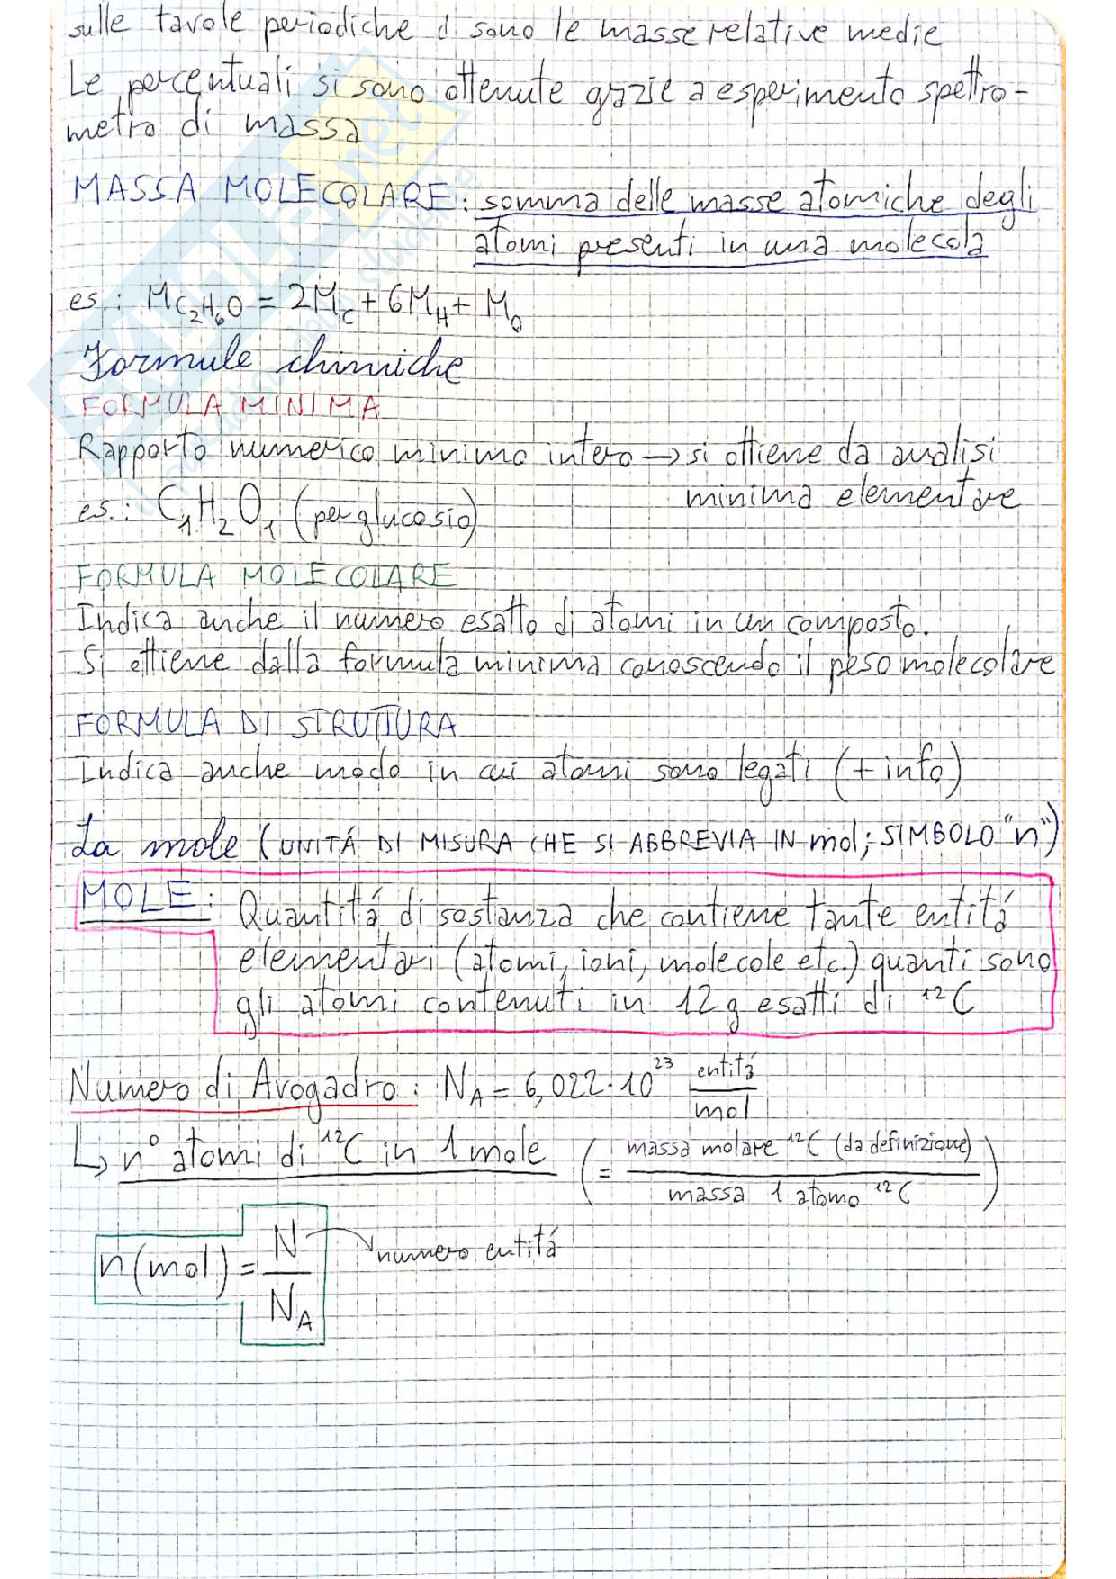 sulle tavole periodiche ci sono le masse relative medie
Le percentuali si sono ottenute grazie a esperimento spettro-
metro di massa
MASSA MOLECOLARE: somma delle masse atomiche degli
atomi presenti in una molecola
es.: M_C₂H₆O = 2M_C + 6M_H + M_O
Formule chimiche
FORMULA MINIMA
Rapporto numerico minimo intero → si ottiene da analisi
minima elementare
es.: C₁H₂O₁ (per glucosio)
FORMULA MOLECOLARE
Indica anche il numero esatto di atomi in un composto.
Si ottiene dalla formula minima conoscendo il peso molecolare
FORMULA DI STRUTTURA
Indica anche modo in cui atomi sono legati (+ info)
La mole (UNITÁ DI MISURA CHE SI ABBREVIA IN mol; SIMBOLO "n")
MOLE: Quantitá di sostanza che contiene tante entitá
elementari (atomi, ioni, molecole etc.) quanti sono
gli atomi contenuti in 12 g esatti di ¹²C
Numero di Avogadro: N_A = 6,022·10²³ entitá/mol
↳ n° atomi di ¹²C in 1 mole (= massa molare ¹²C (da definizione) / massa 1 atomo ¹²C)
n(mol) = N/N_A → numero entitá